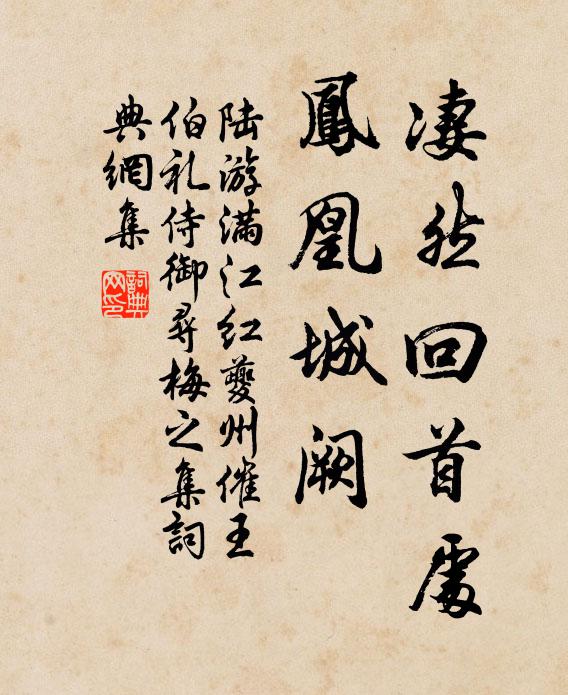 凄然回首處
鳳凰城闕
陆游满江红夔州催王
伯礼侍御尋梅之集詞
典網集
詞典網印